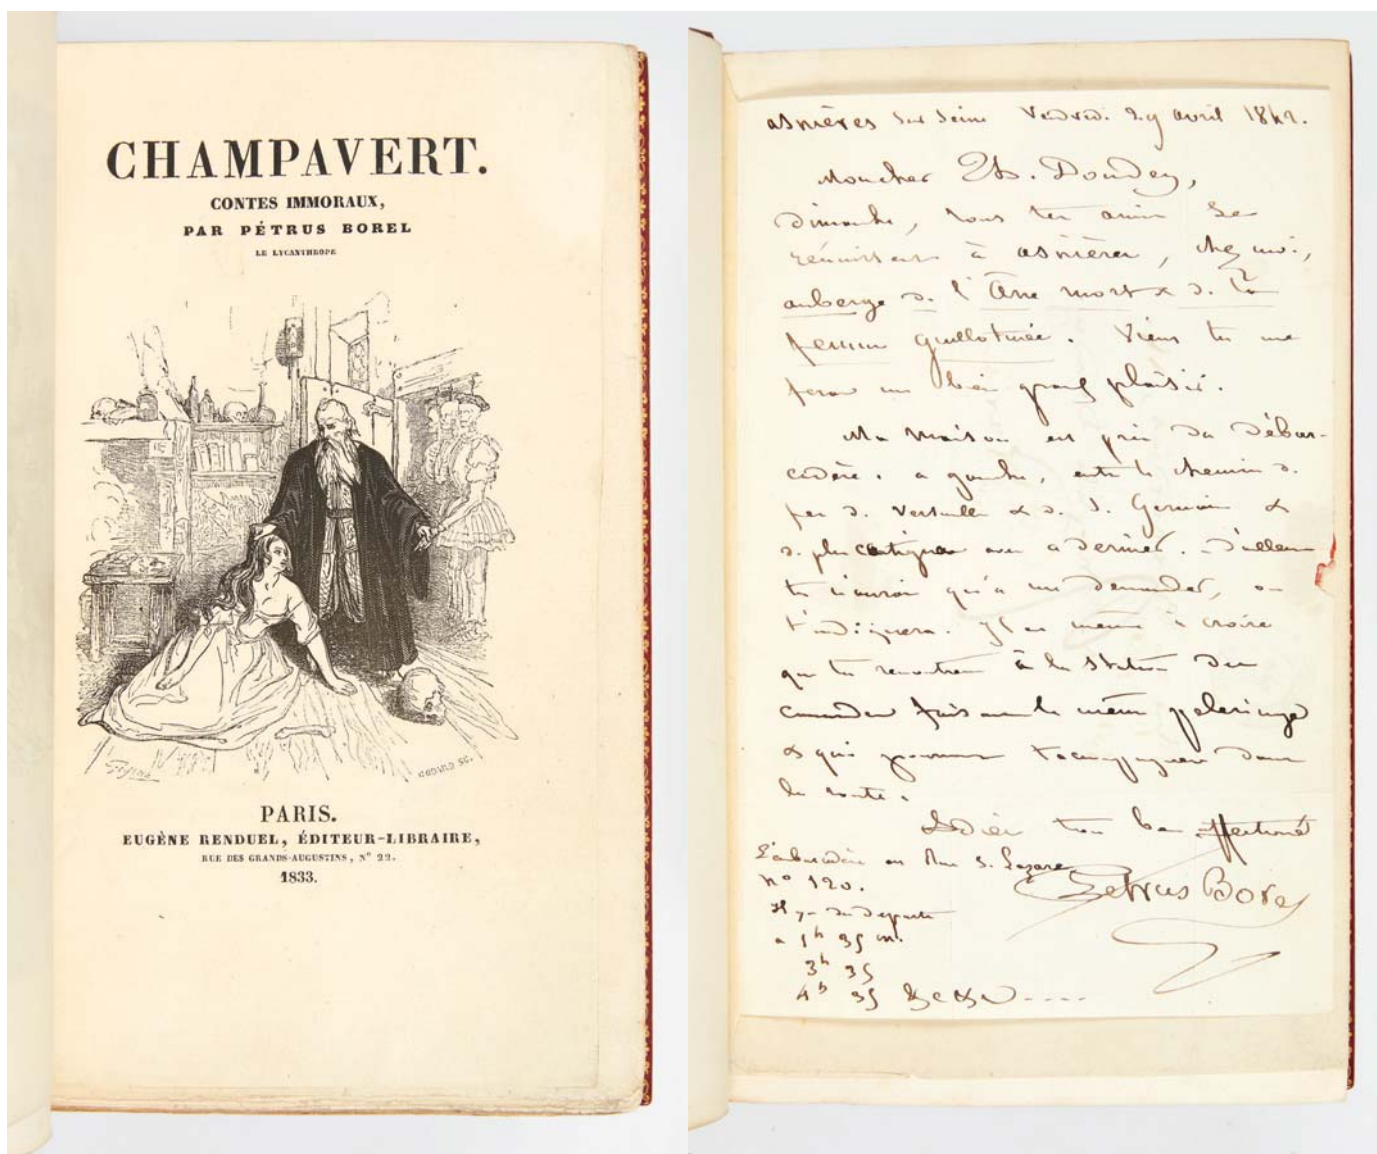 CHAMPAVERT.
CONTES IMMORAUX,
PAR PÉTRUS BOREL
LE LYCANTHROPE
GODARD SC.
PARIS.
EUGÈNE RENDUEL, ÉDITEUR-LIBRAIRE,
RUE DES GRANDS-AUGUSTINS, N° 22.
1833.
asnières sur Seine Vendredi 29 avril 1842.
Mon cher Th. Dondey,
Dimanche, tous tes amis se
réunissent à asnières, chez moi,
auberge de l'Âne mort & de la
femme guillotinée. Viens tu me
feras un bien grand plaisir.
Ma maison est près du Débar-
cadère, a gauche, entre le chemin de
fer de Versailles & de S. Germain &
de plus contigue avec a dernier. D'ailleurs
tu n'auras qu'a me demander, on
t'indiquera. Il est même à croire
que tu rencontreras à la station des
camarades faisant le même pelerinage
& qui pourront t'accompagner dans
la route.
Adieu ton bien affectionné
Petrus Borel
L'embarcadère est Rue S. Lazare
n° 120.
Il y a des departs
a 1h 35 m.
3h 35
4h 35